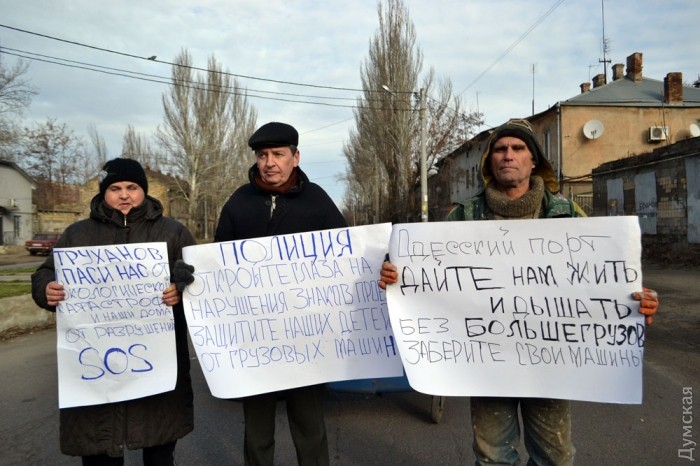 ТРУХАНОВ
СПАСИ НАС ОТ
ЭКОЛОГИЧЕСКОЙ
КАТАСТРОФЫ
И НАШИ ДОМА
ОТ РАЗРУШЕНИЯ
SOS
ПОЛИЦИЯ
ОТКРОЙТЕ ГЛАЗА НА
НАРУШЕНИЯ ЗНАКОВ
ЗАЩИТИТЕ НАШИХ ДЕТЕЙ
ОТ ГРУЗОВЫХ МАШИН
ОДЕССКИЙ ПОРТ
ДАЙТЕ НАМ ЖИТЬ
И ДЫШАТЬ
БЕЗ БОЛЬШЕГРУЗОВ
ЗАБЕРИТЕ СВОИ МАШИНЫ
Думская